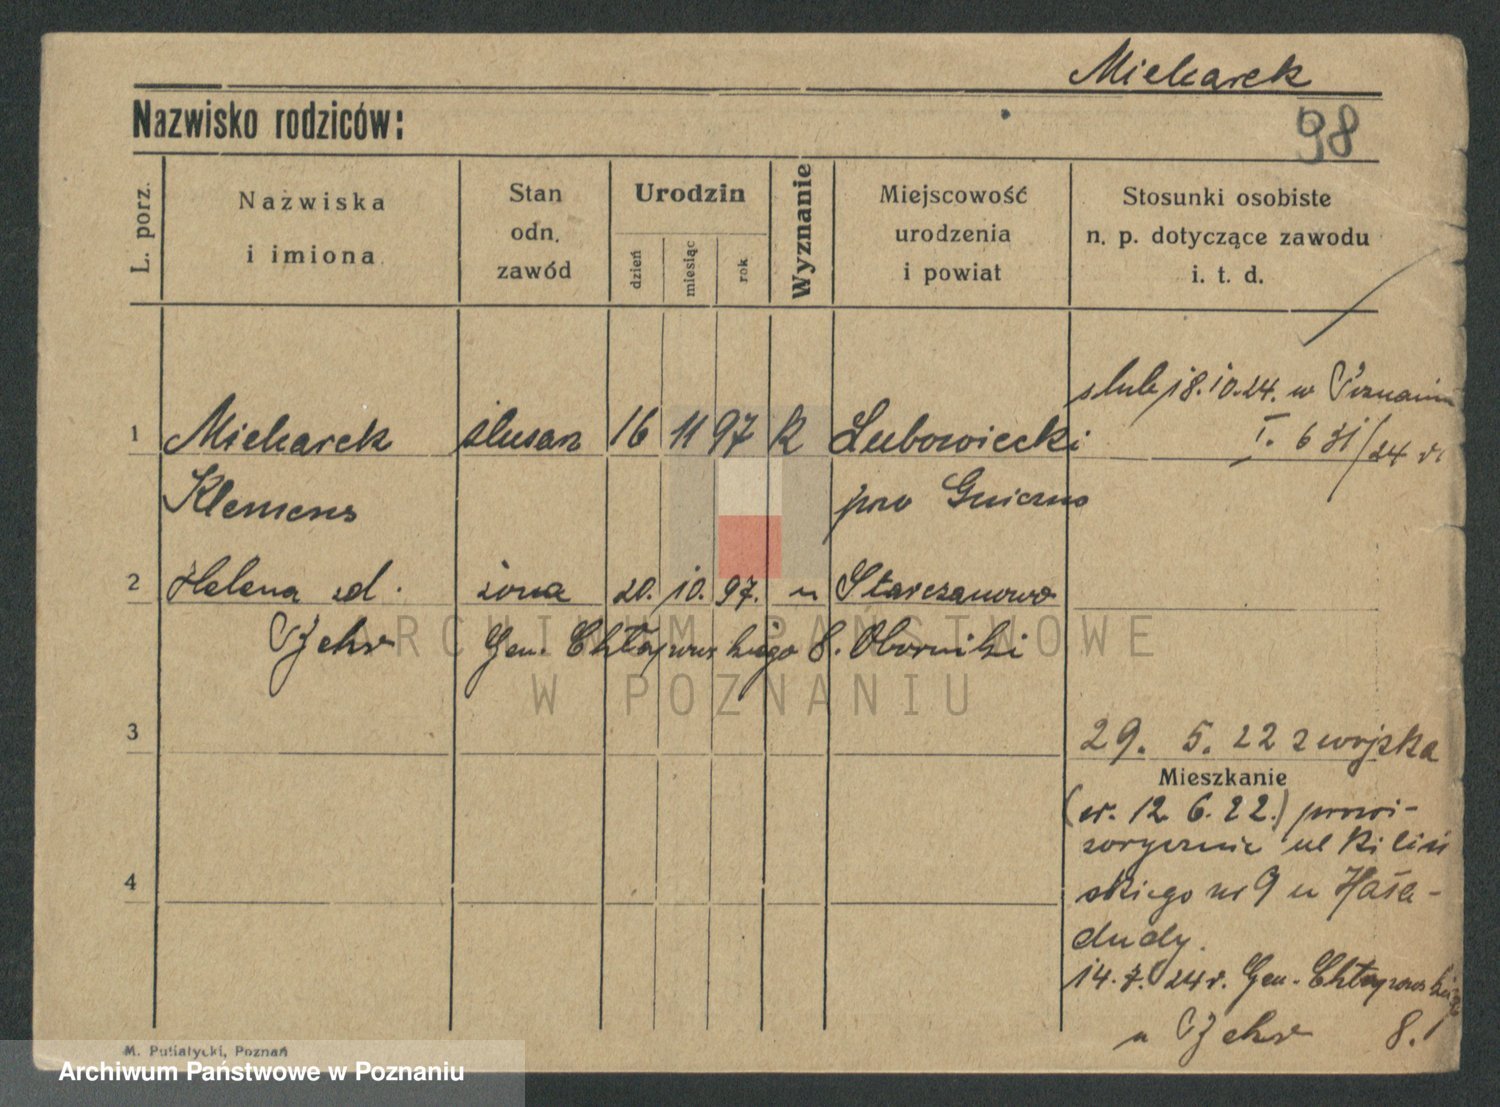 Mielcarek
Nazwisko rodziców:
98
L. porz.
Nazwiska
i imiona
Stan
odn.
zawód
Urodzin
dzień
miesiąc
rok
Wyznanie
Miejscowość
urodzenia
i powiat
Stosunki osobiste
n. p. dotyczące zawodu
i. t. d.
ślub 18.10.24. w Poznaniu
I. 6 /24 r.
1 Mielcarek ślusarz 16 11 97 k Lubowiecki
Klemens pow Gniezno
2 Helena zd. żona 20. 10. 97. " Starczanowo
Gen. Chłapowskiego 8. Oborniki
ARCHIWUM PAŃSTWOWE
W POZNANIU
3
29. 5. 22 z wojska
Mieszkanie
12. 6. 22.) prowi-
zorycznie ul Kiliń
skiego nr 9 u Hała-
dudy.
4
14. 7. 24 r. Gen. Chłapowskiego
u 8.
M. Putiatycki, Poznań
Archiwum Państwowe w Poznaniu